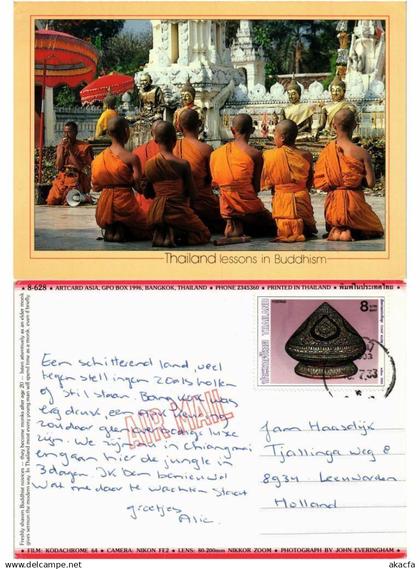 Thailand lessons in Buddhism
8-628 • ARTCARD ASIA, GPO BOX 1996, BANGKOK, THAILAND • PHONE 2345360 • PRINTED IN THAILAND • พิมพ์ในประเทศไทย
8
Een schitterend land, veel
tegenstellingen zoals hollen
of stil staan. Bangkok was
erg druk, een
zou door geen overbodige luxe
zijn. We zijn nu in chiangmai
en gaan hier de jungle in
3 dagen. Ik ben benieuwd
wat me daar te wachten staat
groetjes
Alie.
AIR MAIL
Fam Haasdijk
Tjallinga weg 8
8934 Leeuwarden
Holland
Freshly shaven Buddhist novices — they become monks after age 20 — listen attentively as an elder monk
gives sermon the modern way. In Thailand most every young man will spend time as a monk, even if briefly.
• FILM: KODACHROME 64 • CAMERA: NIKON FE2 • LENS: 80-200mm NIKKOR ZOOM • PHOTOGRAPH BY JOHN EVERINGHAM •
www.delcampe.net
akacfa